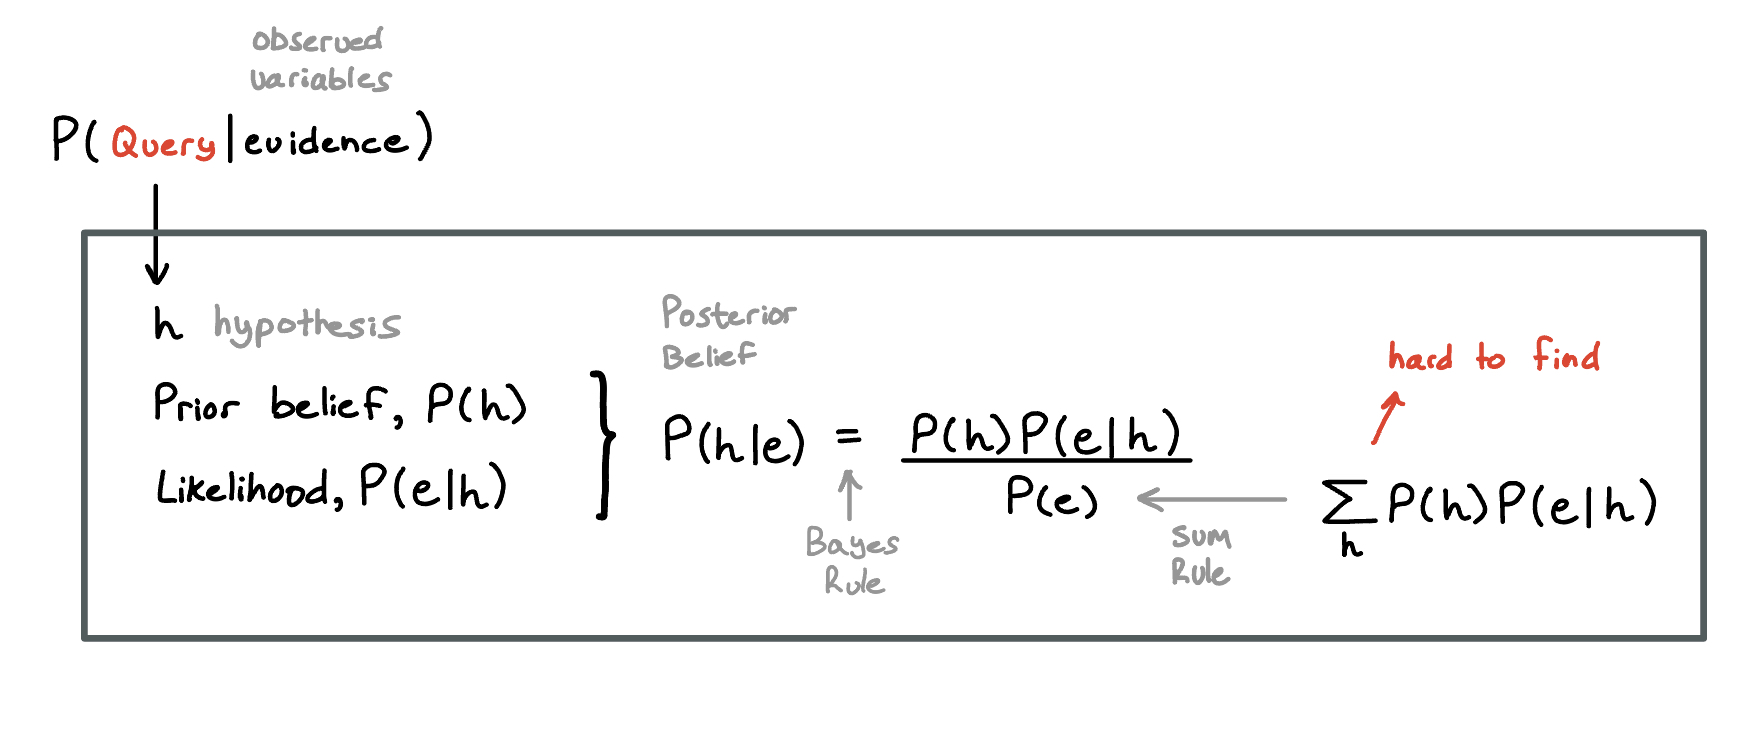 observed
variables
P(Query|evidence)
h hypothesis
Prior belief, P(h)
Likelihood, P(e|h)
Posterior
Belief
P(h|e) = P(h)P(e|h)
P(e)
Bayes
Rule
Sum
Rule
hard to find
∑ P(h)P(e|h)
h